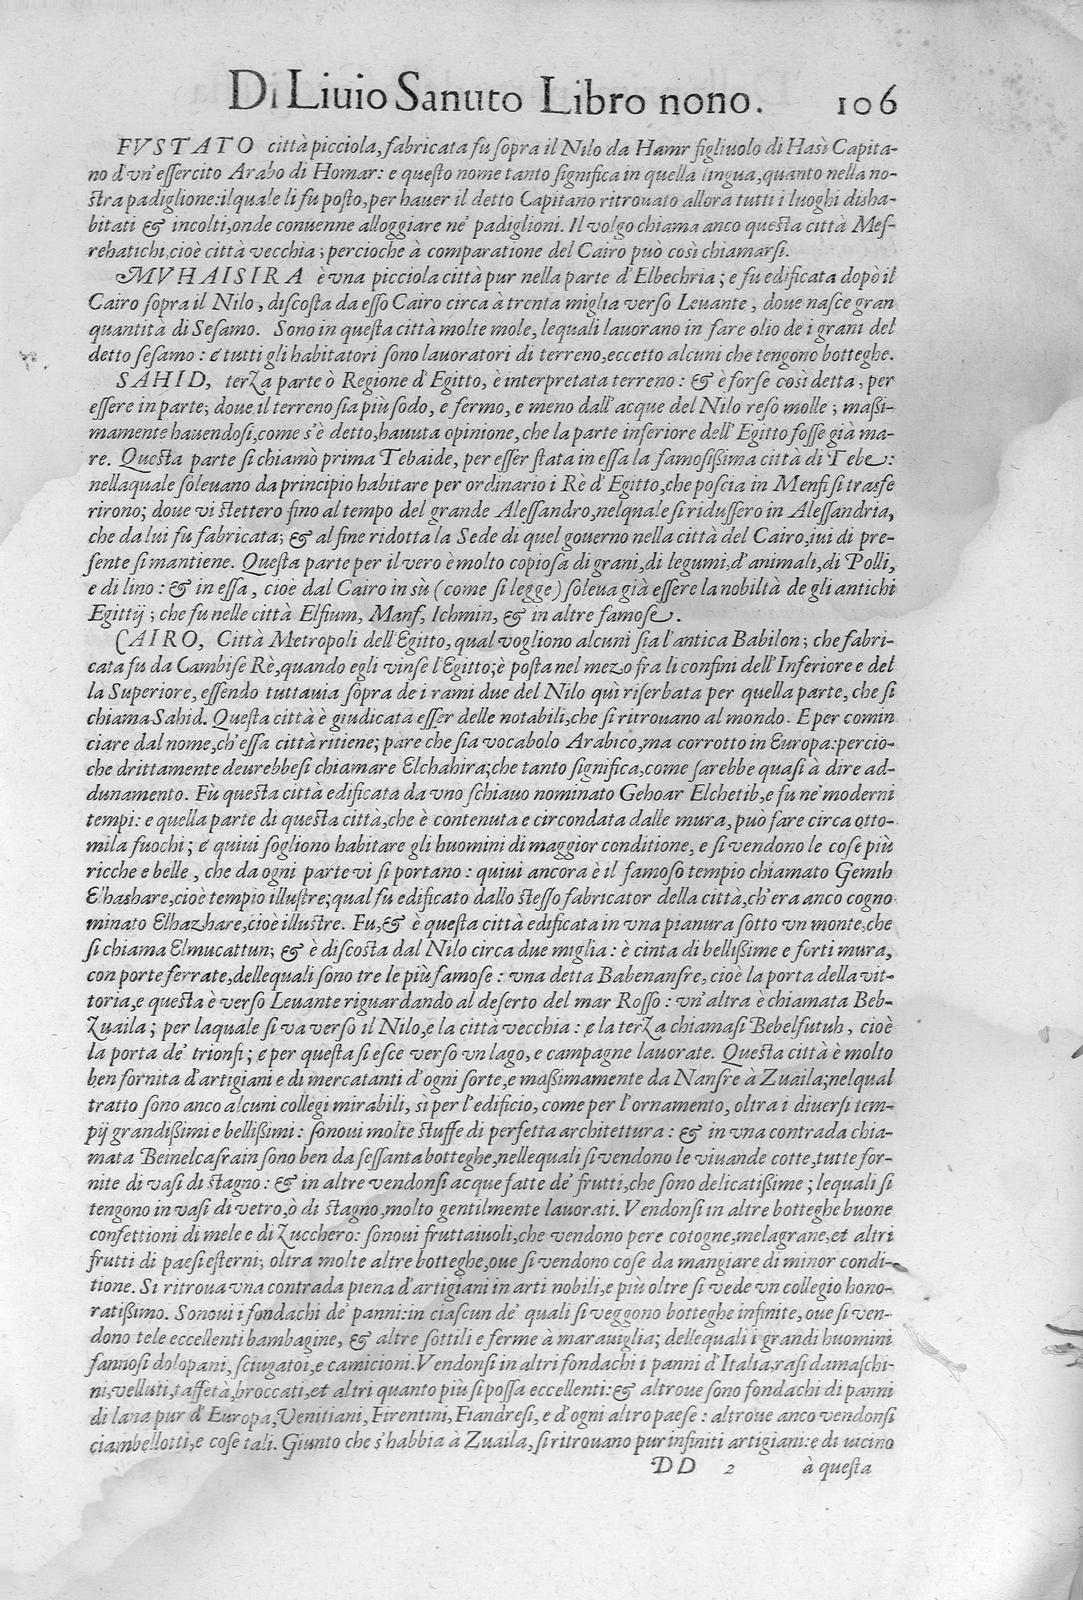 Di Liuio Sanuto Libro nono. 106
FVSTATO città picciola, fabricata fu sopra il Nilo da Hamr figliuolo di Hasì Capita-
no d'vn'essercito Arabo di Homar: e questo nome tanto significa in quella lingua, quanto nella no-
stra padiglione: il quale li fu posto, per hauer il detto Capitano ritrouato allora tutti i luoghi disha-
bitati & incolti, onde conuenne alloggiare ne' padiglioni. Il volgo chiama anco questa città Mes-
rehatichi, cioè città vecchia; percioche à comparatione del Cairo può così chiamarsi.
MVHAISIRA è vna picciola città pur nella parte d'Elbechria; e fu edificata dopò il
Cairo sopra il Nilo, discosta da esso Cairo circa à trenta miglia verso Leuante, doue nasce gran
quantità di Sesamo. Sono in questa città molte mole, lequali lauorano in fare olio de i grani del
detto sesamo: e tutti gli habitatori sono lauoratori di terreno, eccetto alcuni che tengono botteghe.
SAHID, terza parte ò Regione d'Egitto, è interpretata terreno: & è forse così detta, per
essere in parte; doue il terreno sia più sodo, e fermo, e meno dall'acque del Nilo reso molle; massi-
mamente hauendosi, come s'è detto, hauuta opinione, che la parte inferiore dell'Egitto fosse già ma-
re. Questa parte si chiamò prima Tebaide, per esser stata in essa la famosissima città di Tebe:
nellaquale soleuano da principio habitare per ordinario i Rè d'Egitto, che poscia in Menfi si trasfe
rirono; doue vi stettero fino al tempo del grande Alessandro, nelquale si ridussero in Alessandria,
che da lui fu fabricata; & al fine ridotta la Sede di quel gouerno nella città del Cairo, iui di pre-
sente si mantiene. Questa parte per il vero è molto copiosa di grani, di legumi, d'animali, di Polli,
e di lino: & in essa, cioè dal Cairo in sù (come si legge) soleua già essere la nobiltà de gli antichi
Egittij; che fu nelle città Elfium, Manf, Ichmin, & in altre famose.
CAIRO, Città Metropoli dell'Egitto, qual vogliono alcuni sia l'antica Babilon; che fabri-
cata fu da Cambise Rè, quando egli vinse l'Egitto; è posta nel mezo fra li confini dell'Inferiore e del
la Superiore, essendo tuttauia sopra de i rami due del Nilo quì riserbata per quella parte, che si
chiama Sahid. Questa città è giudicata esser delle notabili, che si ritrouano al mondo. E per comin
ciare dal nome, ch'essa città ritiene; pare che sia vocabolo Arabico, ma corrotto in Europa: percio-
che drittamente deurebbesi chiamare Elchahira; che tanto significa, come sarebbe quasi à dire ad-
dunamento. Fù questa città edificata da vno schiauo nominato Gehoar Elchetib, e fu ne' moderni
tempi: e quella parte di questa città, che è contenuta e circondata dalle mura, può fare circa otto-
mila fuochi; e quiui sogliono habitare gli huomini di maggior conditione, e si vendono le cose più
ricche e belle, che da ogni parte vi si portano: quiui ancora è il famoso tempio chiamato Gemih
Elhashare, cioè tempio illustre; qual fu edificato dallo stesso fabricator della città, ch'era anco cogno
minato Elhazhare, cioè illustre. Fu, & è questa città edificata in vna pianura sotto vn monte, che
si chiama Elmucattun; & è discosta dal Nilo circa due miglia: è cinta di bellissime e forti mura,
con porte ferrate, dellequali sono tre le più famose: vna detta Babenansre, cioè la porta della vit-
toria, e questa è verso Leuante riguardando al deserto del mar Rosso: vn'altra è chiamata Beb-
Zuaila; per laquale si va verso il Nilo, e la città vecchia: e la terza chiamasi Bebelfutuh, cioè
la porta de' trionfi; e per questa si esce verso vn lago, e campagne lauorate. Questa città è molto
ben fornita d'artigiani e di mercatanti d'ogni sorte, e massimamente da Nansre à Zuaila; nelqual
tratto sono anco alcuni collegi mirabili, sì per l'edificio, come per l'ornamento, oltra i diuersi tem-
pij grandissimi e bellissimi: sonoui molte stuffe di perfetta architettura: & in vna contrada chia-
mata Beinelcasrain sono ben da sessanta botteghe, nellequali si vendono le viuande cotte, tutte for-
nite di vasi di stagno: & in altre vendonsi acque fatte de' frutti, che sono delicatissime; lequali si
tengono in vasi di vetro, ò di stagno, molto gentilmente lauorati. Vendonsi in altre botteghe buone
confettioni di mele e di Zucchero: sonoui fruttaiuoli, che vendono pere cotogne, melagrane, et altri
frutti di paesi esterni; oltra molte altre botteghe, oue si vendono cose da mangiare di minor condi-
tione. Si ritroua vna contrada piena d'artigiani in arti nobili, e più oltre si vede vn collegio hono-
ratissimo. Sonoui i fondachi de' panni: in ciascun de' quali si veggono botteghe infinite, oue si ven-
dono tele eccellenti bambagine, & altre sottili e ferme à marauiglia; dellequali i grandi huomini
fannosi dolopani, sciugatoi, e camicioni. Vendonsi in altri fondachi i panni d'Italia, rasi damaschi-
ni, velluti, taffetà, broccati, et altri quanto più si possa eccellenti: & altroue sono fondachi di panni
di lana pur d'Europa, Venitiani, Firentini, Fiandresi, e d'ogni altro paese: altroue anco vendonsi
ciambellotti, e cose tali. Giunto che s'habbia à Zuaila, si ritrouano pur infiniti artigiani: e di vicino
DD 2 à questa